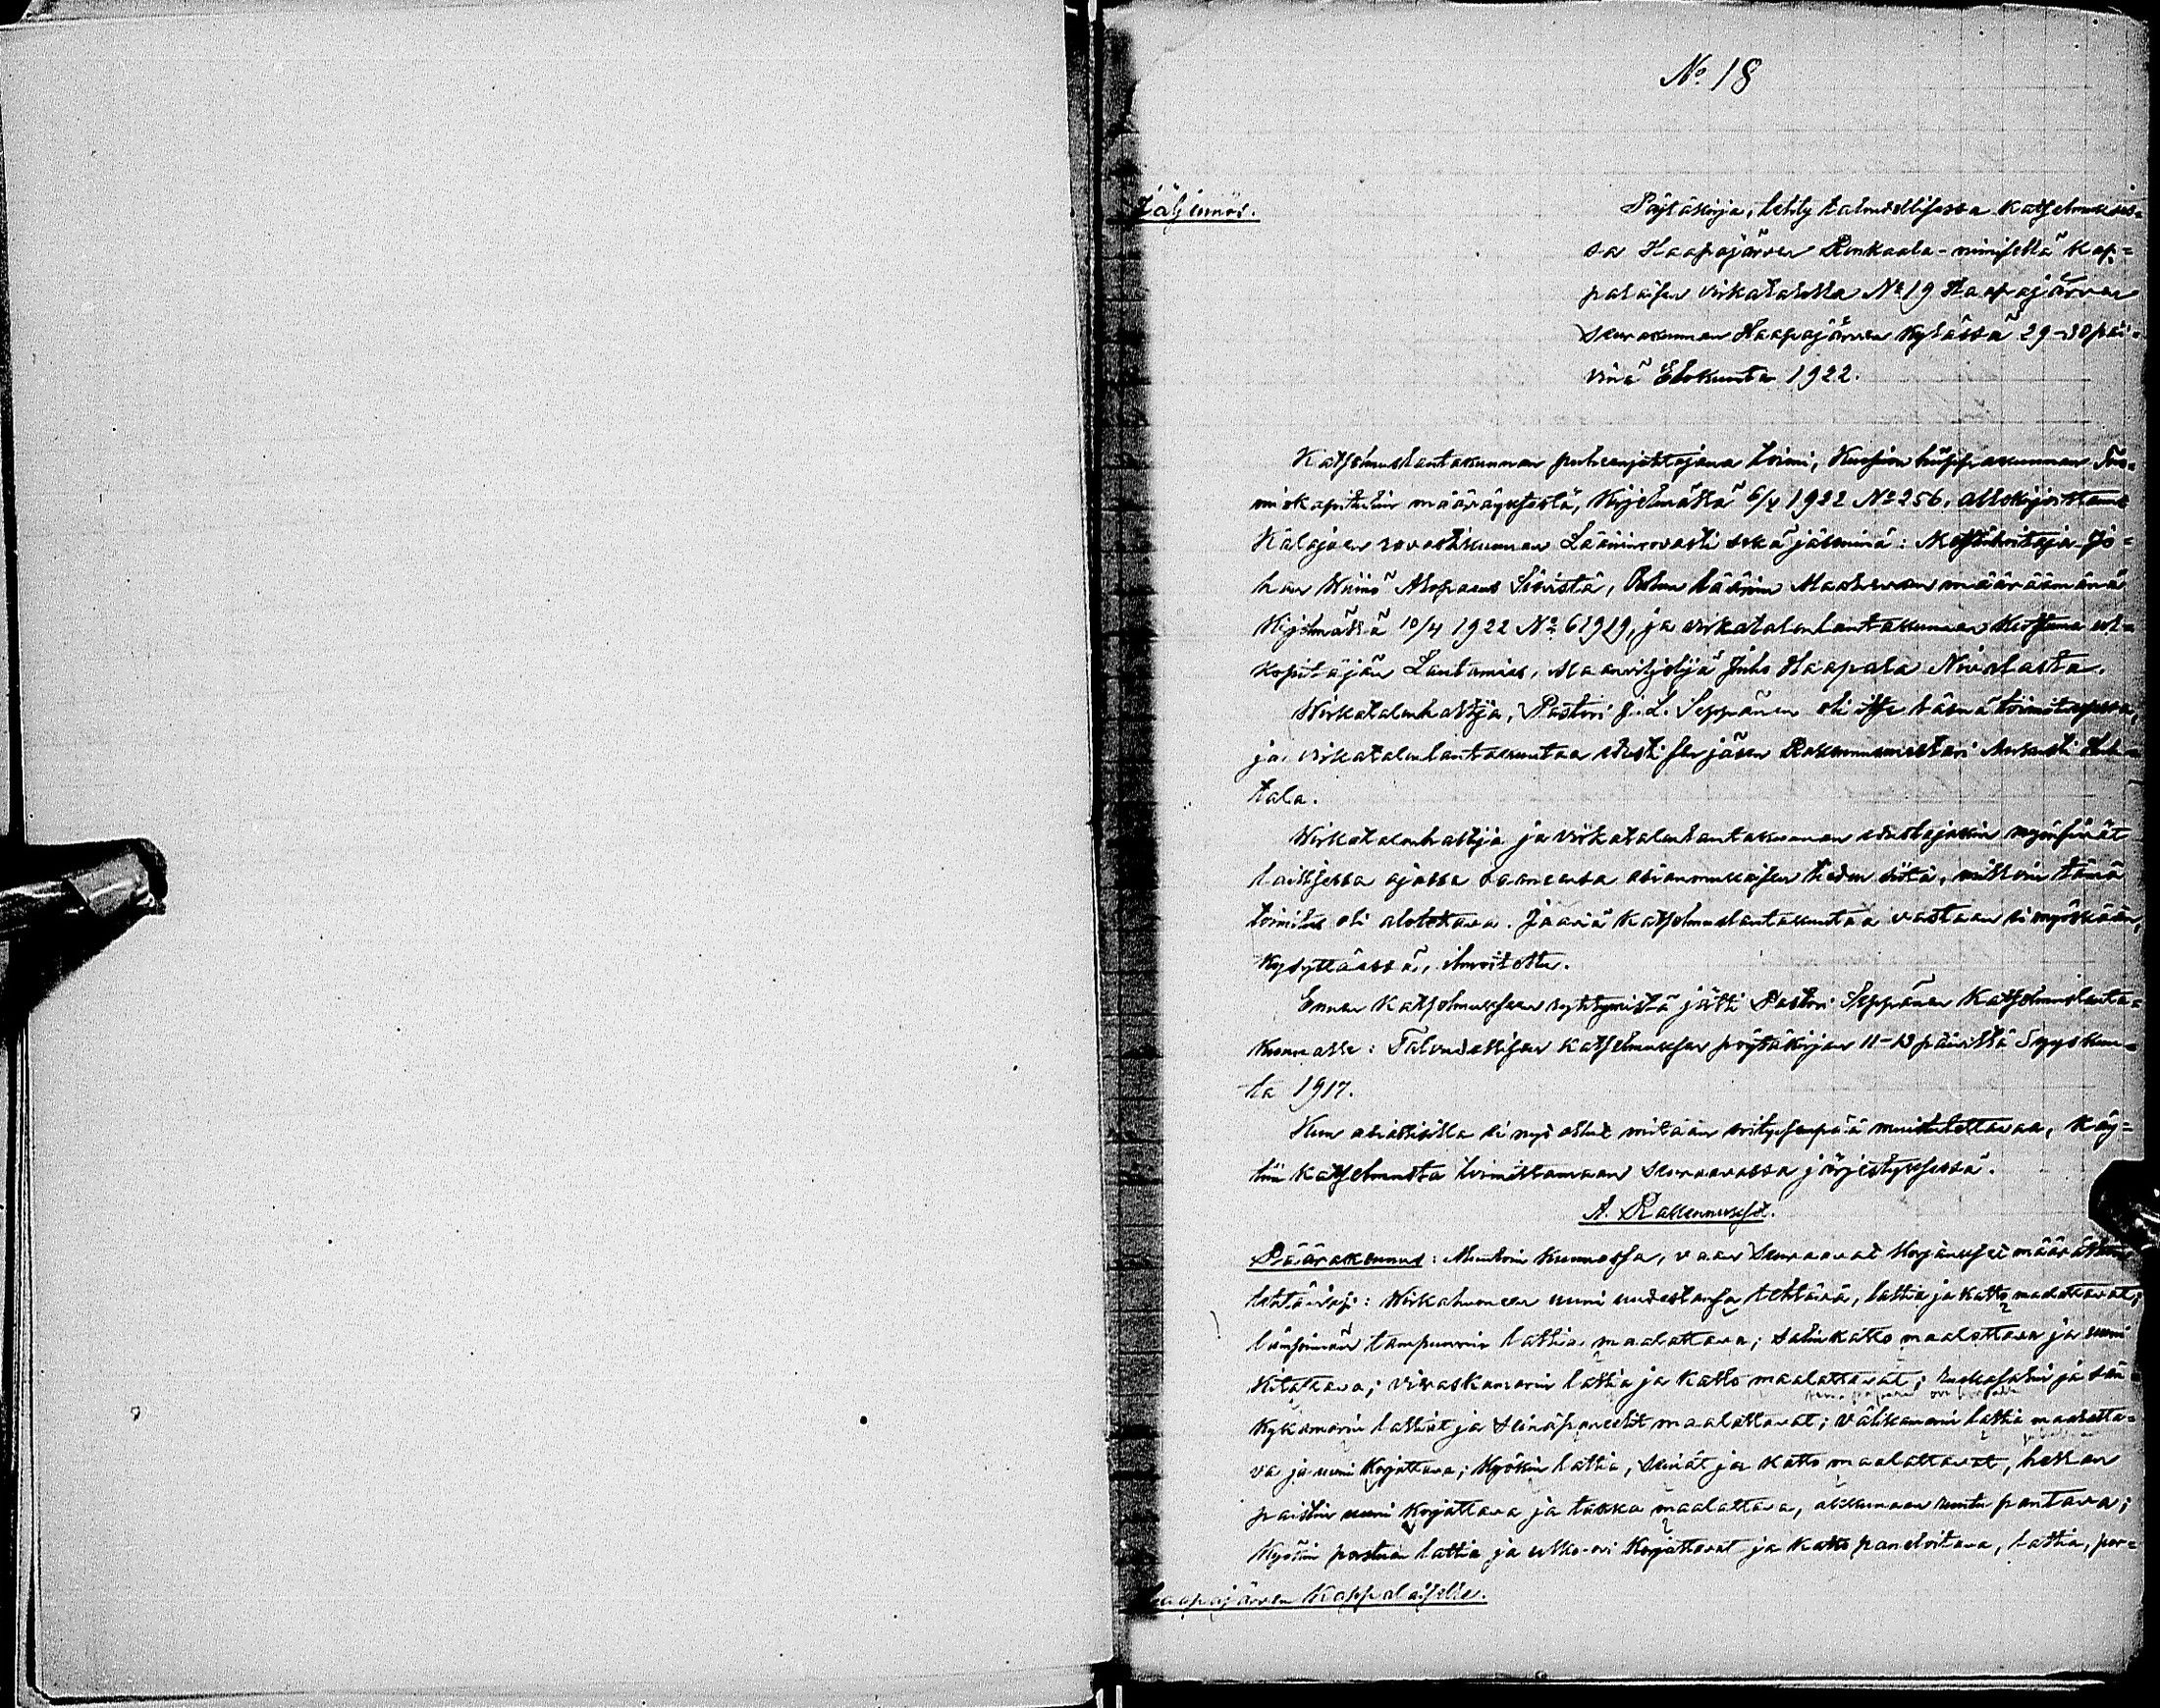 No 18
Jäljennös.
Pöytäkirja, tehty taloudellisessa katselmukses=
sa Haapajärven Ronkaala-nimisellä kap=
palaisen virkatalolla No 19 Haapajärven
Seurakunnan Haapajärven kylässä 29-30 päi=
vinä Elokuuta 1922.
Katselmuslautakunnan puheenjohtajana toimi, Kuopion hiippakunnan Tuo=
miokapitulin määräyksestä, kirjelmällä 6/4 1922 No 256, allekirjoittanut
Kalajoen rovastikunnan Lääninrovasti sekä jäseninä: Metsänhoitaja Jo=
han Wäinö Alopaeus Sievistä, Oulun läänin Maaherran määräämänä
Kirjelmällä 10/4 1922 No 61929, ja virkatalolautakunnan kutsuma ul=
kopitäjän Lautamies, Maanviljelijä Juho Haapala Nivalasta.
Wirkatalonhaltija, Pastori J. L. Seppänen oli itse läsnä toimituksessa,
ja virkatalolautakuntaa edusti sen jäsen Rakennusmestari Aukusti Huh=
tala.
Wirkatalonhaltija ja virkatalolautakunnan edustajakin myönsivät
laillisessa ajassa saaneensa asianmukaisen tiedon siitä, milloin tämä
toimitus oli alotettava. Jääviä katselmuslautakuntaa vastaan ei myöskään,
kysyttäessä, ilmoitettu.
Ennen katselmukseen ryhtymistä jätti Pastori Seppänen katselmuslauta=
kunnalle: Taloudellisen katselmuksen pöytäkirjan 11-13 päiviltä Syyskuu=
ta 1917.
Kun asiallisilla ei nyt ollut mitään erityisempää muistutettavaa, käy=
tiin katselmusta toimittamaan seuraavassa järjestyksessä.
A. Rakennukset.
Päärakennus: Muutoin kunnossa, vaan seuraavat korjaukset määrättiin
tehtäviksi: Wirkahuoneen uuni uudestansa tehtävä, lattia ja katto maalattavat;
läntisen tampuurin lattia maalattava; salin katto maalattava ja uuni
kitattava; vieraskamarin lattia ja katto maalattavat; ruokasalin ja sän=
kykamarin lattiat ja seinäpaneelit maalattavat; välikamarin lattia maalatta=
va ja uuni korjattava; kyökin lattia, seinät ja katto maalattavat, hellan
paistin uuni korjattava ja takka maalattava, akkunaan ruutu pantava;
kyökin porstuan lattia ja ulko-ovi korjattavat ja katto paneloitava, lattia, por=
Haapajärven Kappalaiselle.